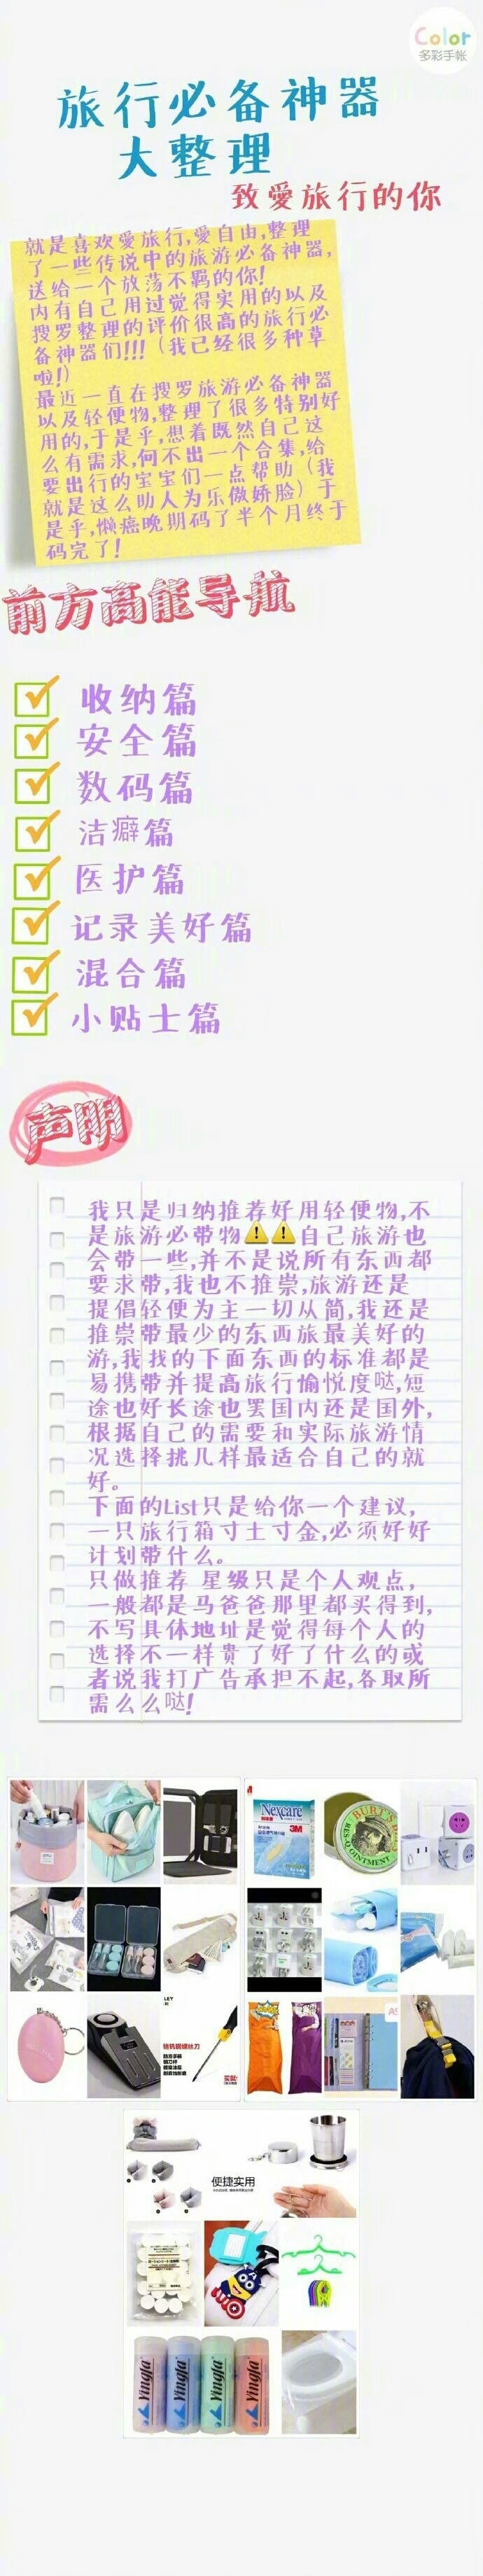 Color
多彩手帐
旅行必备神器
大整理
致愛旅行的你
就是喜欢愛旅行,愛自由,整理
了一些传说中的旅游必备神器,
送给一个放荡不羁的你!
内有自己用过觉得实用的以及
搜罗整理的评价很高的旅行必
备神器们!!!(我已经很多种草
啦!)
最近一直在搜罗旅游必备神器
以及轻便物,整理了很多特别好
用的,于是乎,想着既然自己这
么有需求,何不出一个合集,给
要出行的宝宝们一点帮助(我
就是这么助人为乐傲娇脸)于
是乎,懒癌晚期码了半个月终于
码完了!
前方高能导航
收纳篇
安全篇
数码篇
洁癖篇
医护篇
记录美好篇
混合篇
小贴士篇
声明
我只是归纳推荐好用轻便物,不
是旅游必带物⚠️⚠️自己旅游也
会带一些,并不是说所有东西都
要求带,我也不推崇,旅游还是
提倡轻便为主一切从简,我还是
推崇带最少的东西旅最美好的
游,我找的下面东西的标准都是
易携带并提高旅行愉悦度哒,短
途也好长途也罢国内还是国外,
根据自己的需要和实际旅游情
况选择挑几样最适合自己的就
好。
下面的List只是给你一个建议,
一只旅行箱寸土寸金,必须好好
计划带什么。
只做推荐 星级只是个人观点,
一般都是马爸爸那里都买得到,
不写具体地址是觉得每个人的
选择不一样贵了好了什么的或
者说我打广告承担不起,各取所
需么么哒!
Nexcare
3M
BURT'S
RES-Q OINTMENT
便捷实用
Yingfa
Yingfa
Yingfa
Yingfa